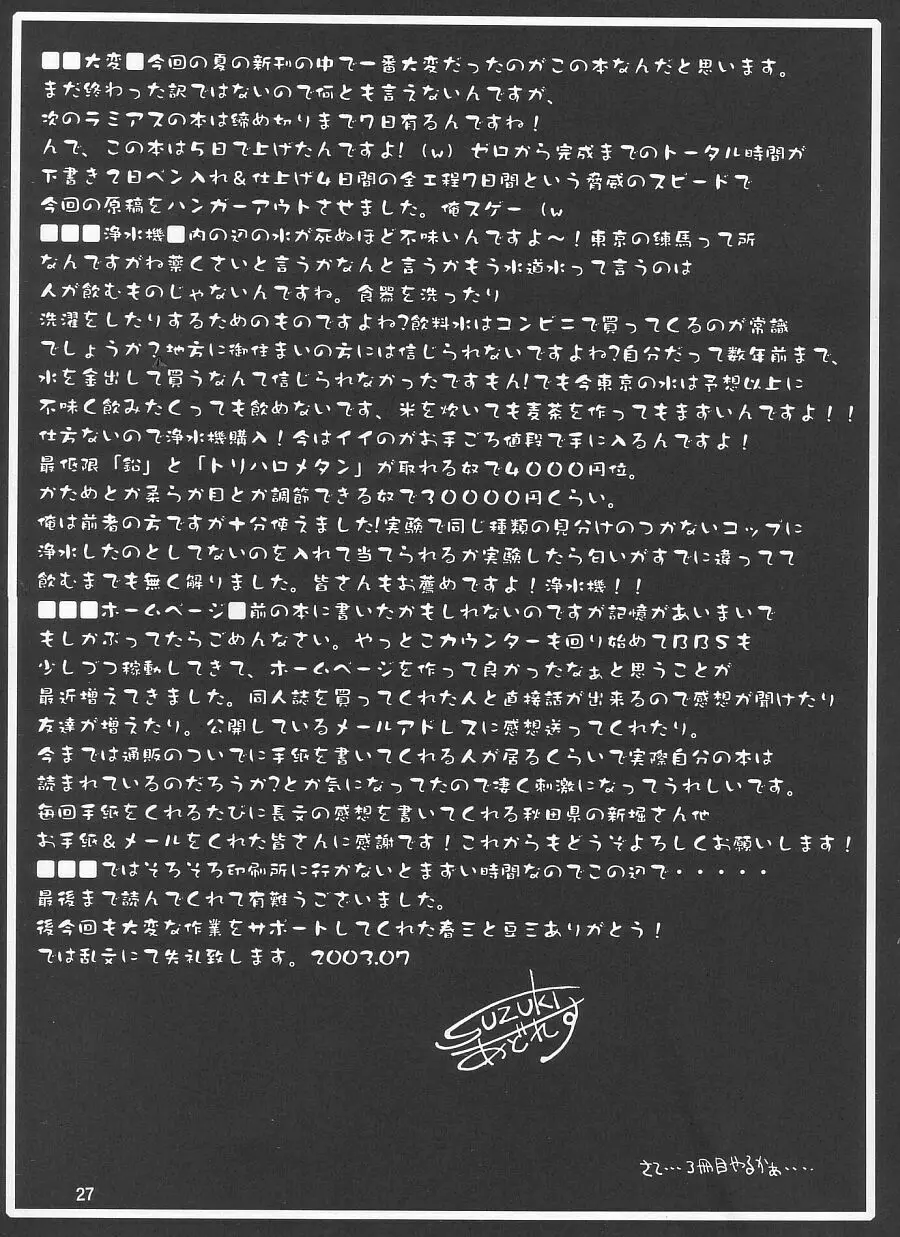 ■■大変■今回の夏の新刊の中で一番大変だったのがこの本なんだと思います。
まだ終わった訳ではないので何とも言えないんですが、
次のラミアスの本は締め切りまで7日有るんですね！
んで、この本は5日で上げたんですよ！(w) ゼロから完成までのトータル時間が
下書き2日ペン入れ&仕上げ4日間の全工程7日間という脅威のスピードで
今回の原稿をハンガーアウトさせました。俺スゲー (w
■■■浄水機■内の辺の水が死ぬほど不味いんですよ～！東京の練馬って所
なんですがね薬くさいと言うかなんと言うかもう水道水って言うのは
人が飲むものじゃないんですね。食器を洗ったり
洗濯をしたりするためのものですよね?飲料水はコンビニで買ってくるのが常識
でしょうか?地方に御住まいの方には信じられないですよね?自分だって数年前まで、
水を金出して買うなんて信じられなかったですもん!でも今東京の水は予想以上に
不味く飲みたくっても飲めないです、米を炊いても麦茶を作ってもまずいんですよ！！
仕方ないので浄水機購入！今はイイのがお手ごろ値段で手に入るんですよ！
最低限「鉛」と「トリハロメタン」が取れる奴で4000円位。
かためとか柔らか目とか調節できる奴で30000円くらい。
俺は前者の方ですが十分使えました!実験で同じ種類の見分けのつかないコップに
浄水したのとしてないのを入れて当てられるか実験したら匂いがすでに違ってて
飲むまでも無く解りました。皆さんもお薦めですよ！浄水機！！
■■■ホームページ■前の本に書いたかもしれないのですが記憶があいまいで
もしかぶってたらごめんなさい。やっとこカウンターも回り始めてBBSも
少しづつ稼動してきて、ホームページを作って良かったなぁと思うことが
最近増えてきました。同人誌を買ってくれた人と直接話が出来るので感想が聞けたり
友達が増えたり。公開しているメールアドレスに感想送ってくれたり。
今までは通販のついでに手紙を書いてくれる人が居るくらいで実際自分の本は
読まれているのだろうか?とか気になってたので凄く刺激になってうれしいです。
毎回手紙をくれるたびに長文の感想を書いてくれる秋田県の新堀さん他
お手紙&メールをくれた皆さんに感謝です！これからもどうぞよろしくお願いします！
■■■ではそろそろ印刷所に行かないとまずい時間なのでこの辺で・・・・・
最後まで読んでくれて有難うございました。
後今回も大変な作業をサポートしてくれた春三と豆三ありがとう！
では乱文にて失礼致します。2003.07
SUZUKI
あどれす
さて…3冊目やるかぁ‥‥
27